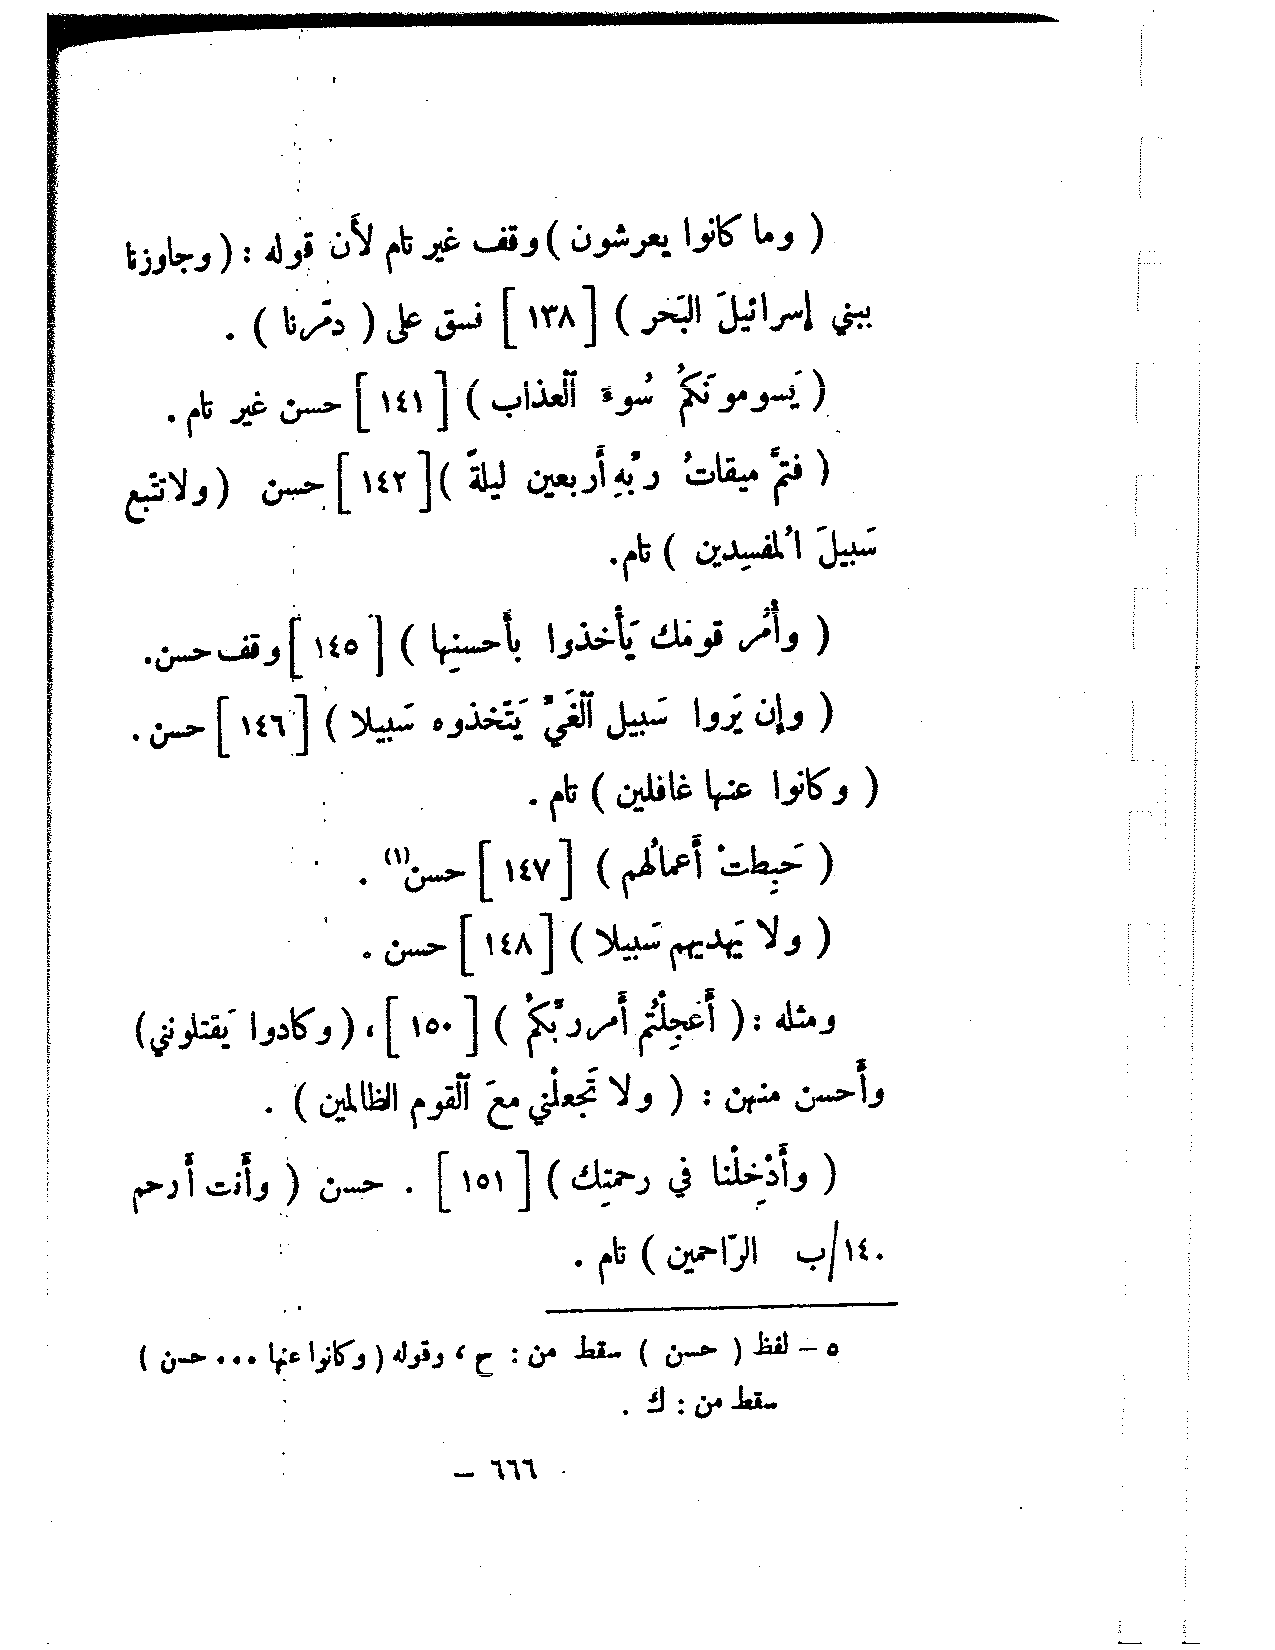 ( وما كانوا يعرشون ) وقف غير تام لأن قوله : ( وجاوزنا
ببني إسرائيلَ البَحر ) [ ١٣٨ ] نسق على ( دمّرنا ) .
( يَسومونَكُم سُوءَ ٱلعذاب ) [ ١٤١ ] حسن غير تام .
( فتمَّ ميقاتُ ربّهِ أربعين ليلةً ) [ ١٤٢ ] حسن ( ولا تتّبع
سَبيلَ المُفسِدين ) تام .
( وأْمُر قومَك يَأخذوا بأحسنِها ) [ ١٤٥ ] وقف حسن .
( وإن يَروا سَبيل ٱلغَيّ يَتّخذوه سَبيلا ) [ ١٤٦ ] حسن .
( وكانوا عنها غافلين ) تام .
( حَبِطتْ أَعمالُهم ) [ ١٤٧ ] حسن(١) .
( ولا يَهديهم سَبيلا ) [ ١٤٨ ] حسن .
ومثله : ( أَعَجِلْتُم أَمر ربّكُم ) [ ١٥٠ ] ، ( وكادوا يَقتلونني )
وأَحسن منهن : ( ولا تَجعلْني معَ ٱلقوم الظالمين ) .
( وأَدْخِلْنا في رحمتِك ) [ ١٥١ ] . حسن ( وأَنت أَرحم
١٤٠/ب الرّاحمين ) تام .
٥ – لفظ ( حسن ) سقط من : ح ، وقوله ( وكانوا عنها ... حسن )
سقط من : ك .
٦٦٦ –